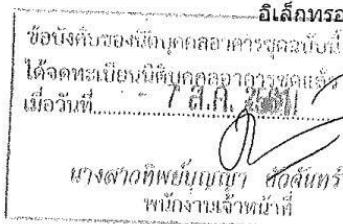 อิเล็กทรอ
ข้อบังคับของนิติบุคคลอาคารชุดฉบับนี้
ได้จดทะเบียนนิติบุคคลอาคารชุดแล้ว
เมื่อวันที่ 7 ส.ค.
นางสาวทิพย์บุญญา
พนักงานเจ้าหน้าที่